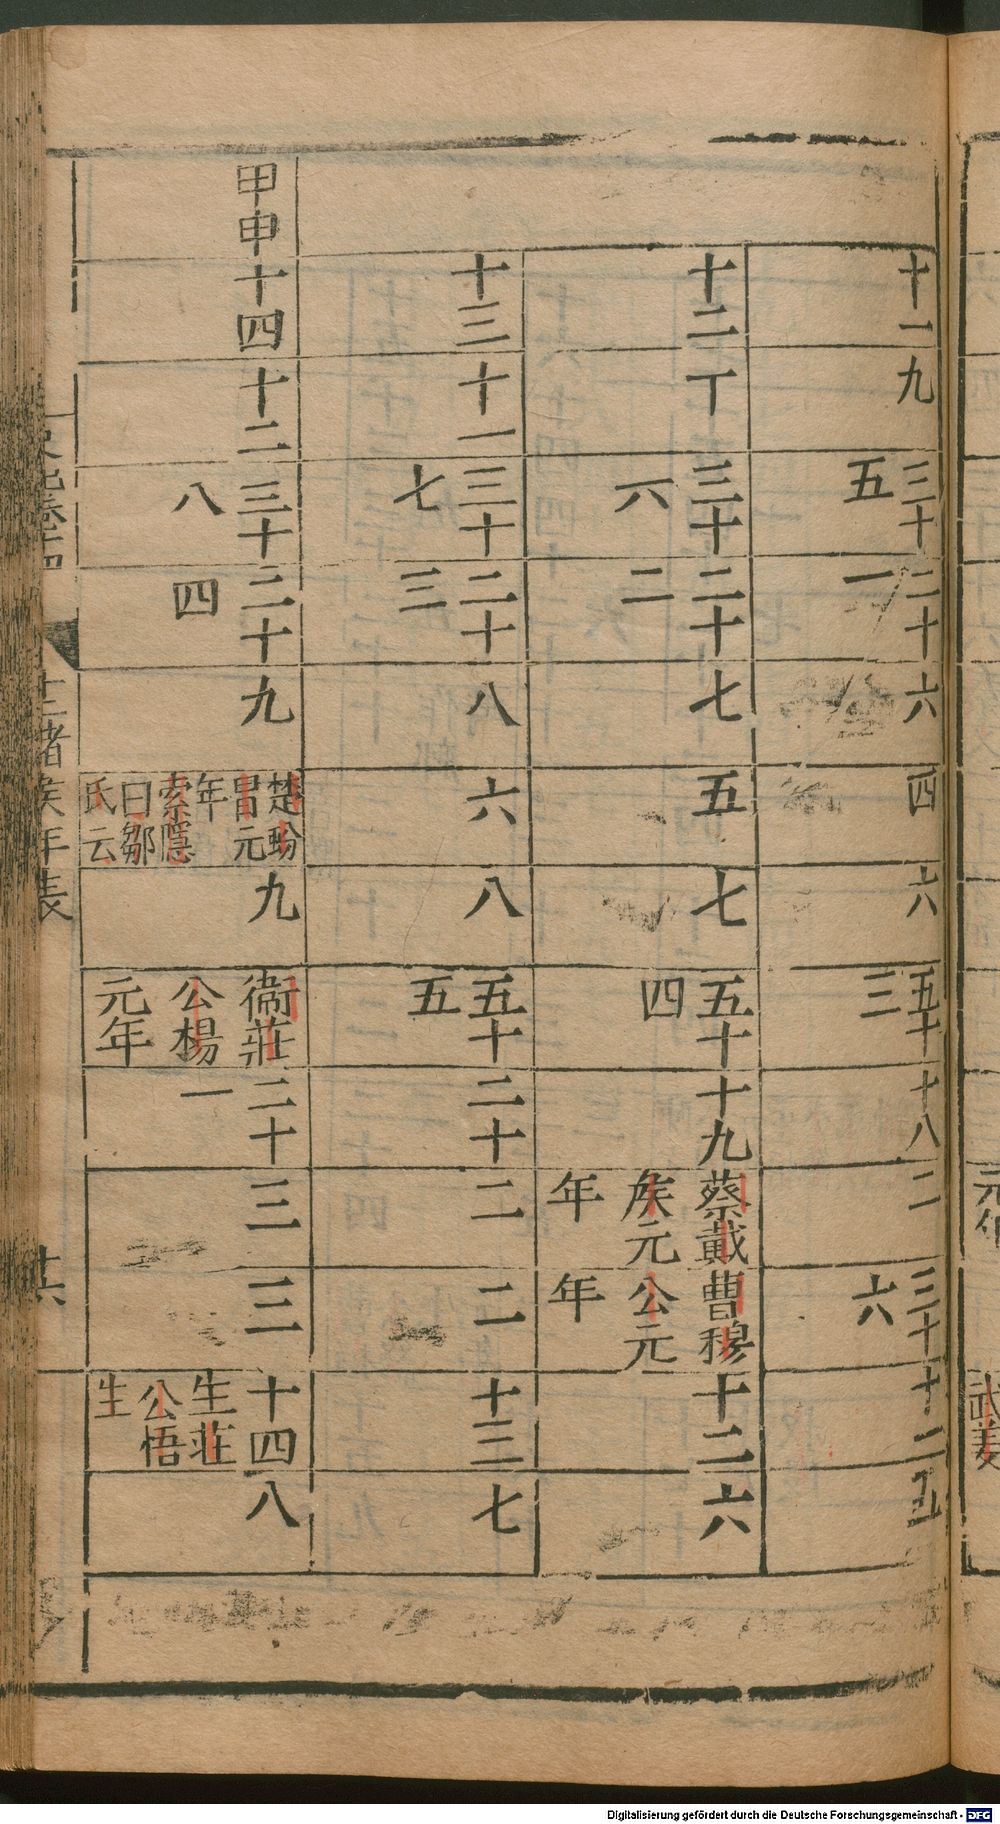 十一
九
三十
五
二十
一
六
四
六
五十
三
十八
二
三十
六
十二
五
十二
丁
三十
六
二十
二
七
五
七
五十
四
十九
蔡戴
矦元
年
曹穆
公元
年
十二
六
十三
十一
三十
七
二十
三
八
六
八
五十
五
二十
二
二
十三
七
甲申
十四
十二
三十
八
二十
四
九
楚蚡
冒元
年
索隱
曰鄒
氏云
九
衞莊
公楊
元年
二十
一
三
三
十四
生莊
公悟
生
八
十二諸矦年表
十六
武姜
Digitalisierung gefördert durch die Deutsche Forschungsgemeinschaft - DFG